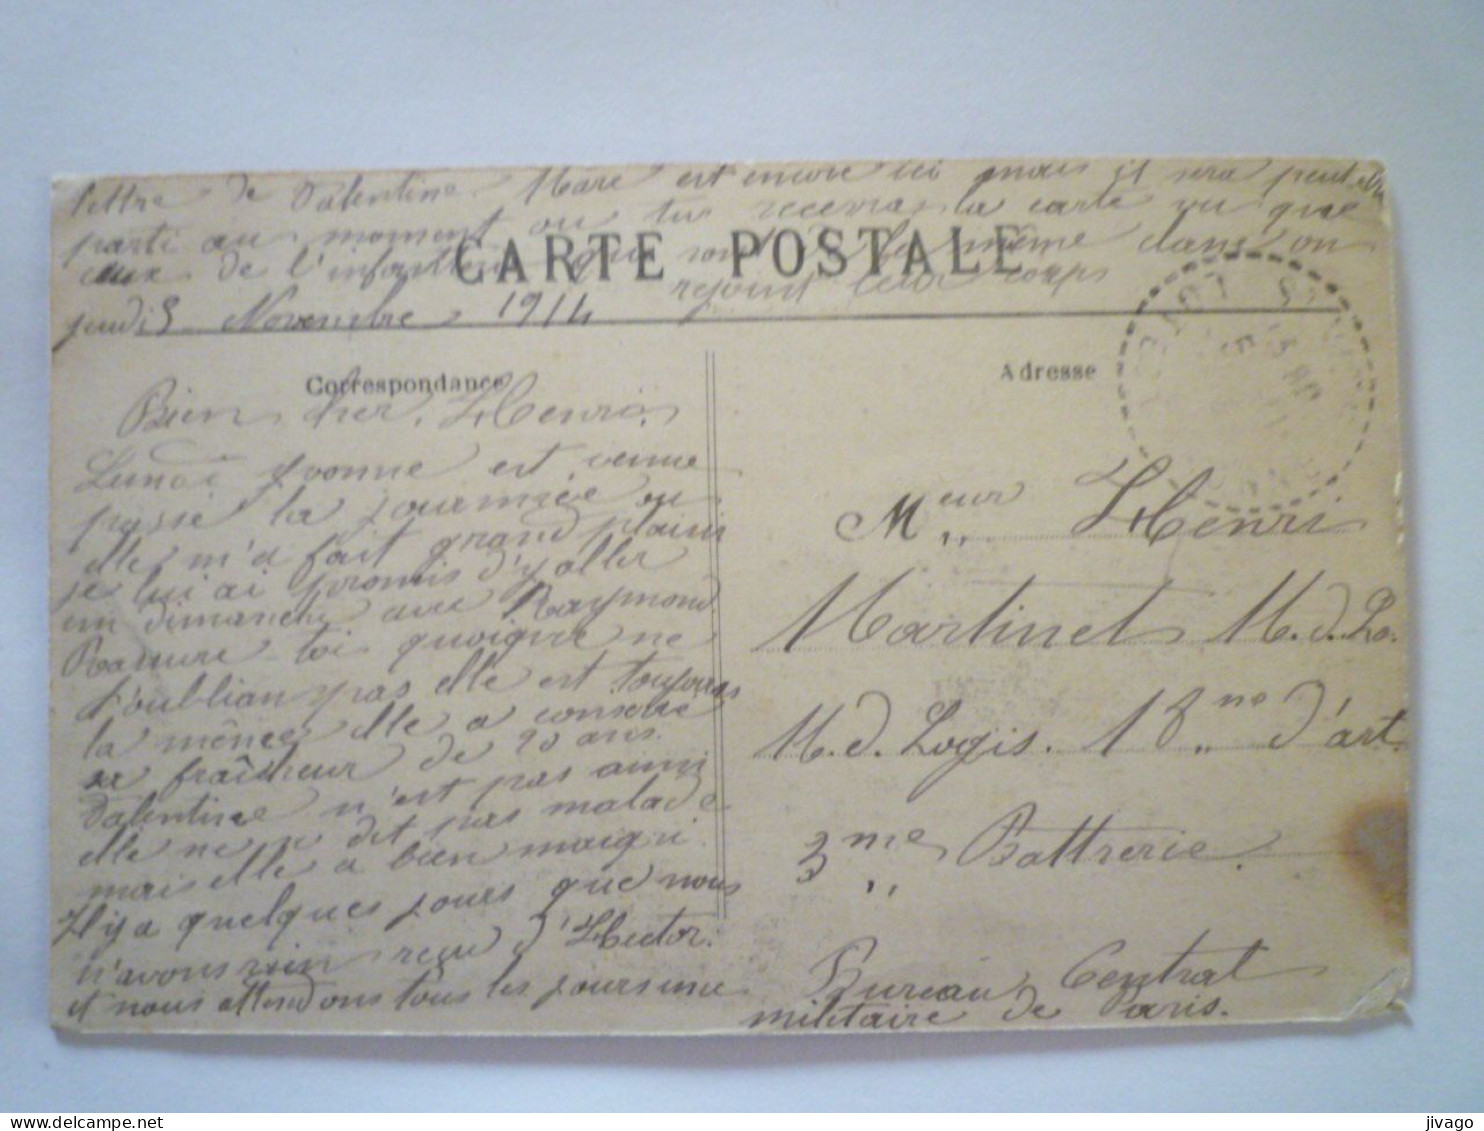 lettre de Valentine Marc est encore ici mais il sera peut etre
parti au moment ou tu recevra la carte vu que
ceux de l'infanterie qui sont là même dans on
rejoint leur corps
CARTE POSTALE
jeudi 5 Novembre 1914
Correspondance
Bien cher Henri
Lundi Yvonne est venue
passé la journée ou
elle m'a fait grand plaisir
je lui ai promis d'y aller
un dimanche avec Raymond
Rassure toi quoique ne
t'oublian pas elle est toujours
la même elle a conservé
sa fraîcheur de 20 ans.
Valentine n'est pas ainsi
elle ne se dit pas malade
mais elle a bien maigri.
Il y a quelques jours que nous
n'avons rien reçu d'Hector.
et nous attendons tous les jours une
Adresse
Meur Henri
Martinet M. d. Lo.
M. d. Logis. 18me d'art.
3me Battrerie.
Bureau Central
militaire de Paris.
jivago